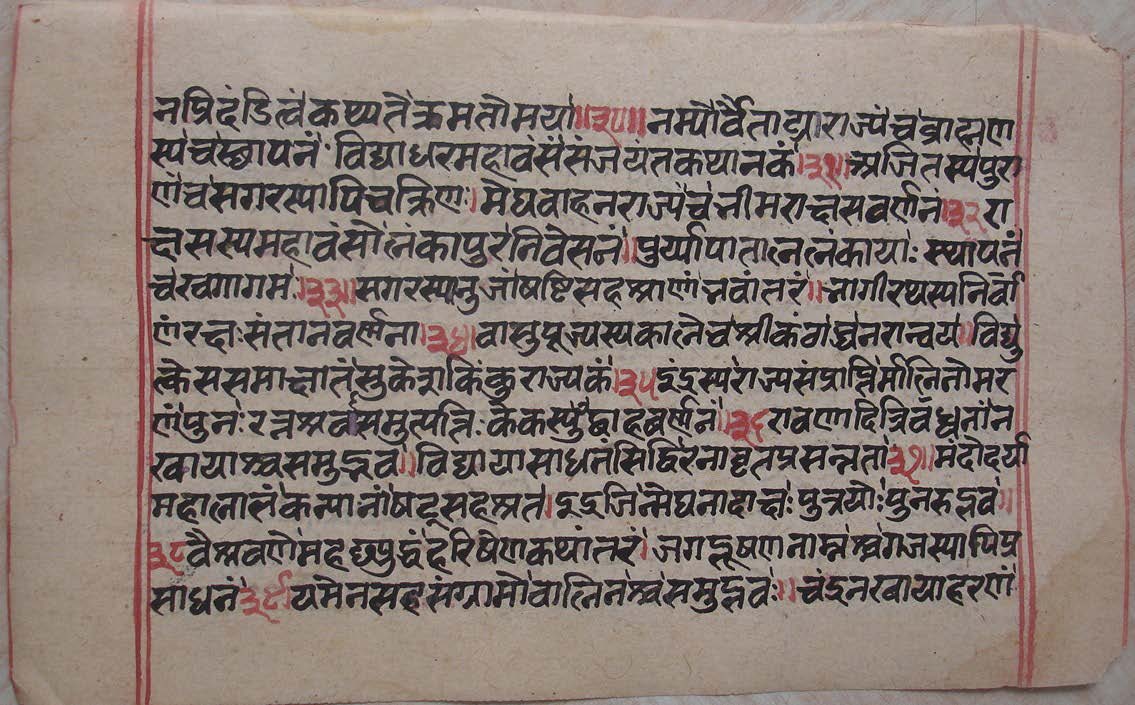 नप्रिदंडित्वंकथ्यतेक्रमतोमया॥३०॥नम्यौर्वैताढ्याराज्यंचब्राह्मण
स्यचस्छापनं॰विद्याधरमहावंसंसंजयंतकथानकं।३१।अजितस्यपुरा
णंचसगरस्यापिचक्रिणः।मेघवाहनराज्यंचनीमराक्षसवर्णनं।३२रा
क्षसस्यमहावंसौलंकापुरनिवेसनं॥पुर्य्यापातालनंकायाः स्थापनं
चखगागमं।३३॥सगरस्यानुजांषष्टिसहश्राणांनवांतरं॥नागीरथस्यनिर्वा
णंरक्षःसंतानवर्णना।३४।वासुपूज्यस्यकालेचश्रीकंठाद्यनरान्वय॥विद्यु
त्केससमाक्षातंसुकेशकिंकुराज्यकं।३५इंद्रस्यराज्यसंप्राप्तिर्मालिनोमर
णंपुनःरत्नश्रवसमुत्पत्तिःकेकस्युद्वाहवर्णनं।३६रावणादित्रिबंधूनांन
खायाश्चसमुद्भवं॥विद्यायासाधनंसिद्धिरनावृतप्रसन्नता।३७॥मंदोदर्या
महालालंकन्यानांषट्सहश्रत।इंद्रजिन्मेघनादाक्षःपुत्रयोःपुनरुद्भवं॥
३८वैश्रवणेमहद्युद्धंहरिषेणकथांतरं।जगद्भूषणनाम्नश्चगजस्यापिप्र
साधनं।३९।यमेनसहसंग्रामोवालिनश्चसमुद्भवः॥चंद्रनखायाहरणं